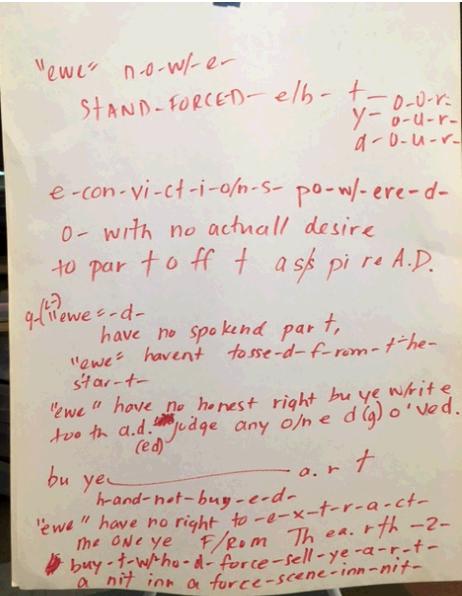 "ewe" n-o-w/-e-
STAND-FORCED- e/b- t- o-o-r-
y- o-u-r-
d-o-u-r-
e-con-vi-ct-i-o/n-s- po-w/-ere-d-
o- with no actuall desire
to par t o ff t a s/s pi re A.D.
"ewe"-d-
have no spokend par t,
"ewe" havent tosse-d-f-rom-t-he-
star-t-
"ewe" have no honest right bu ye w/rite
too th a.d. judge any o/n e d(g) o'ved.
(ed)
bu ye a. r t
h-and-not-buy-e-d-
"ewe" have no right to -e-x-t-r-a-ct-
me one ye F/Rom Th ea. rth -2-
buy-t-w/ho-d-force-sell-ye-a-r-t-
a nit inn a force-scene-inn-nit-